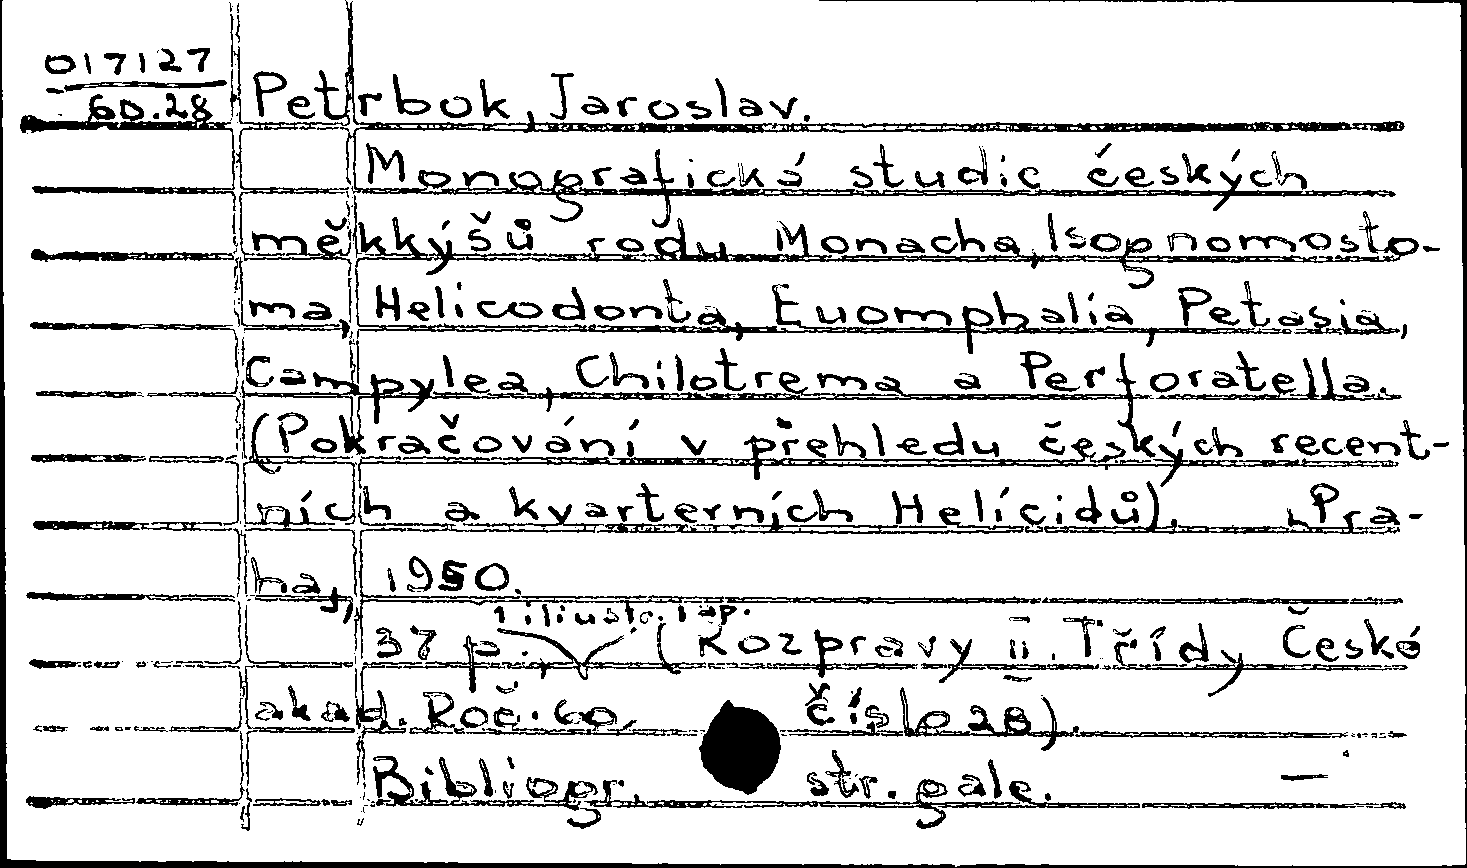 017127
60.28 Petrbok, Jaroslav.
Monografická studie českých
měkkýšů rodu Monacha, Isognomosto-
ma, Helicodonta, Euomphalia, Petasia,
Campylea, Chilotrema a Perforatella.
(Pokračování v přehledu českých recent-
ních a kvarterních Helícidů). Pra-
ha, 1950.
1 illustr. 1 ap.
37 p., (Rozpravy II. Třídy České
akad. Roč. 60, číslo 28).
Bibliogr. str. gale. —